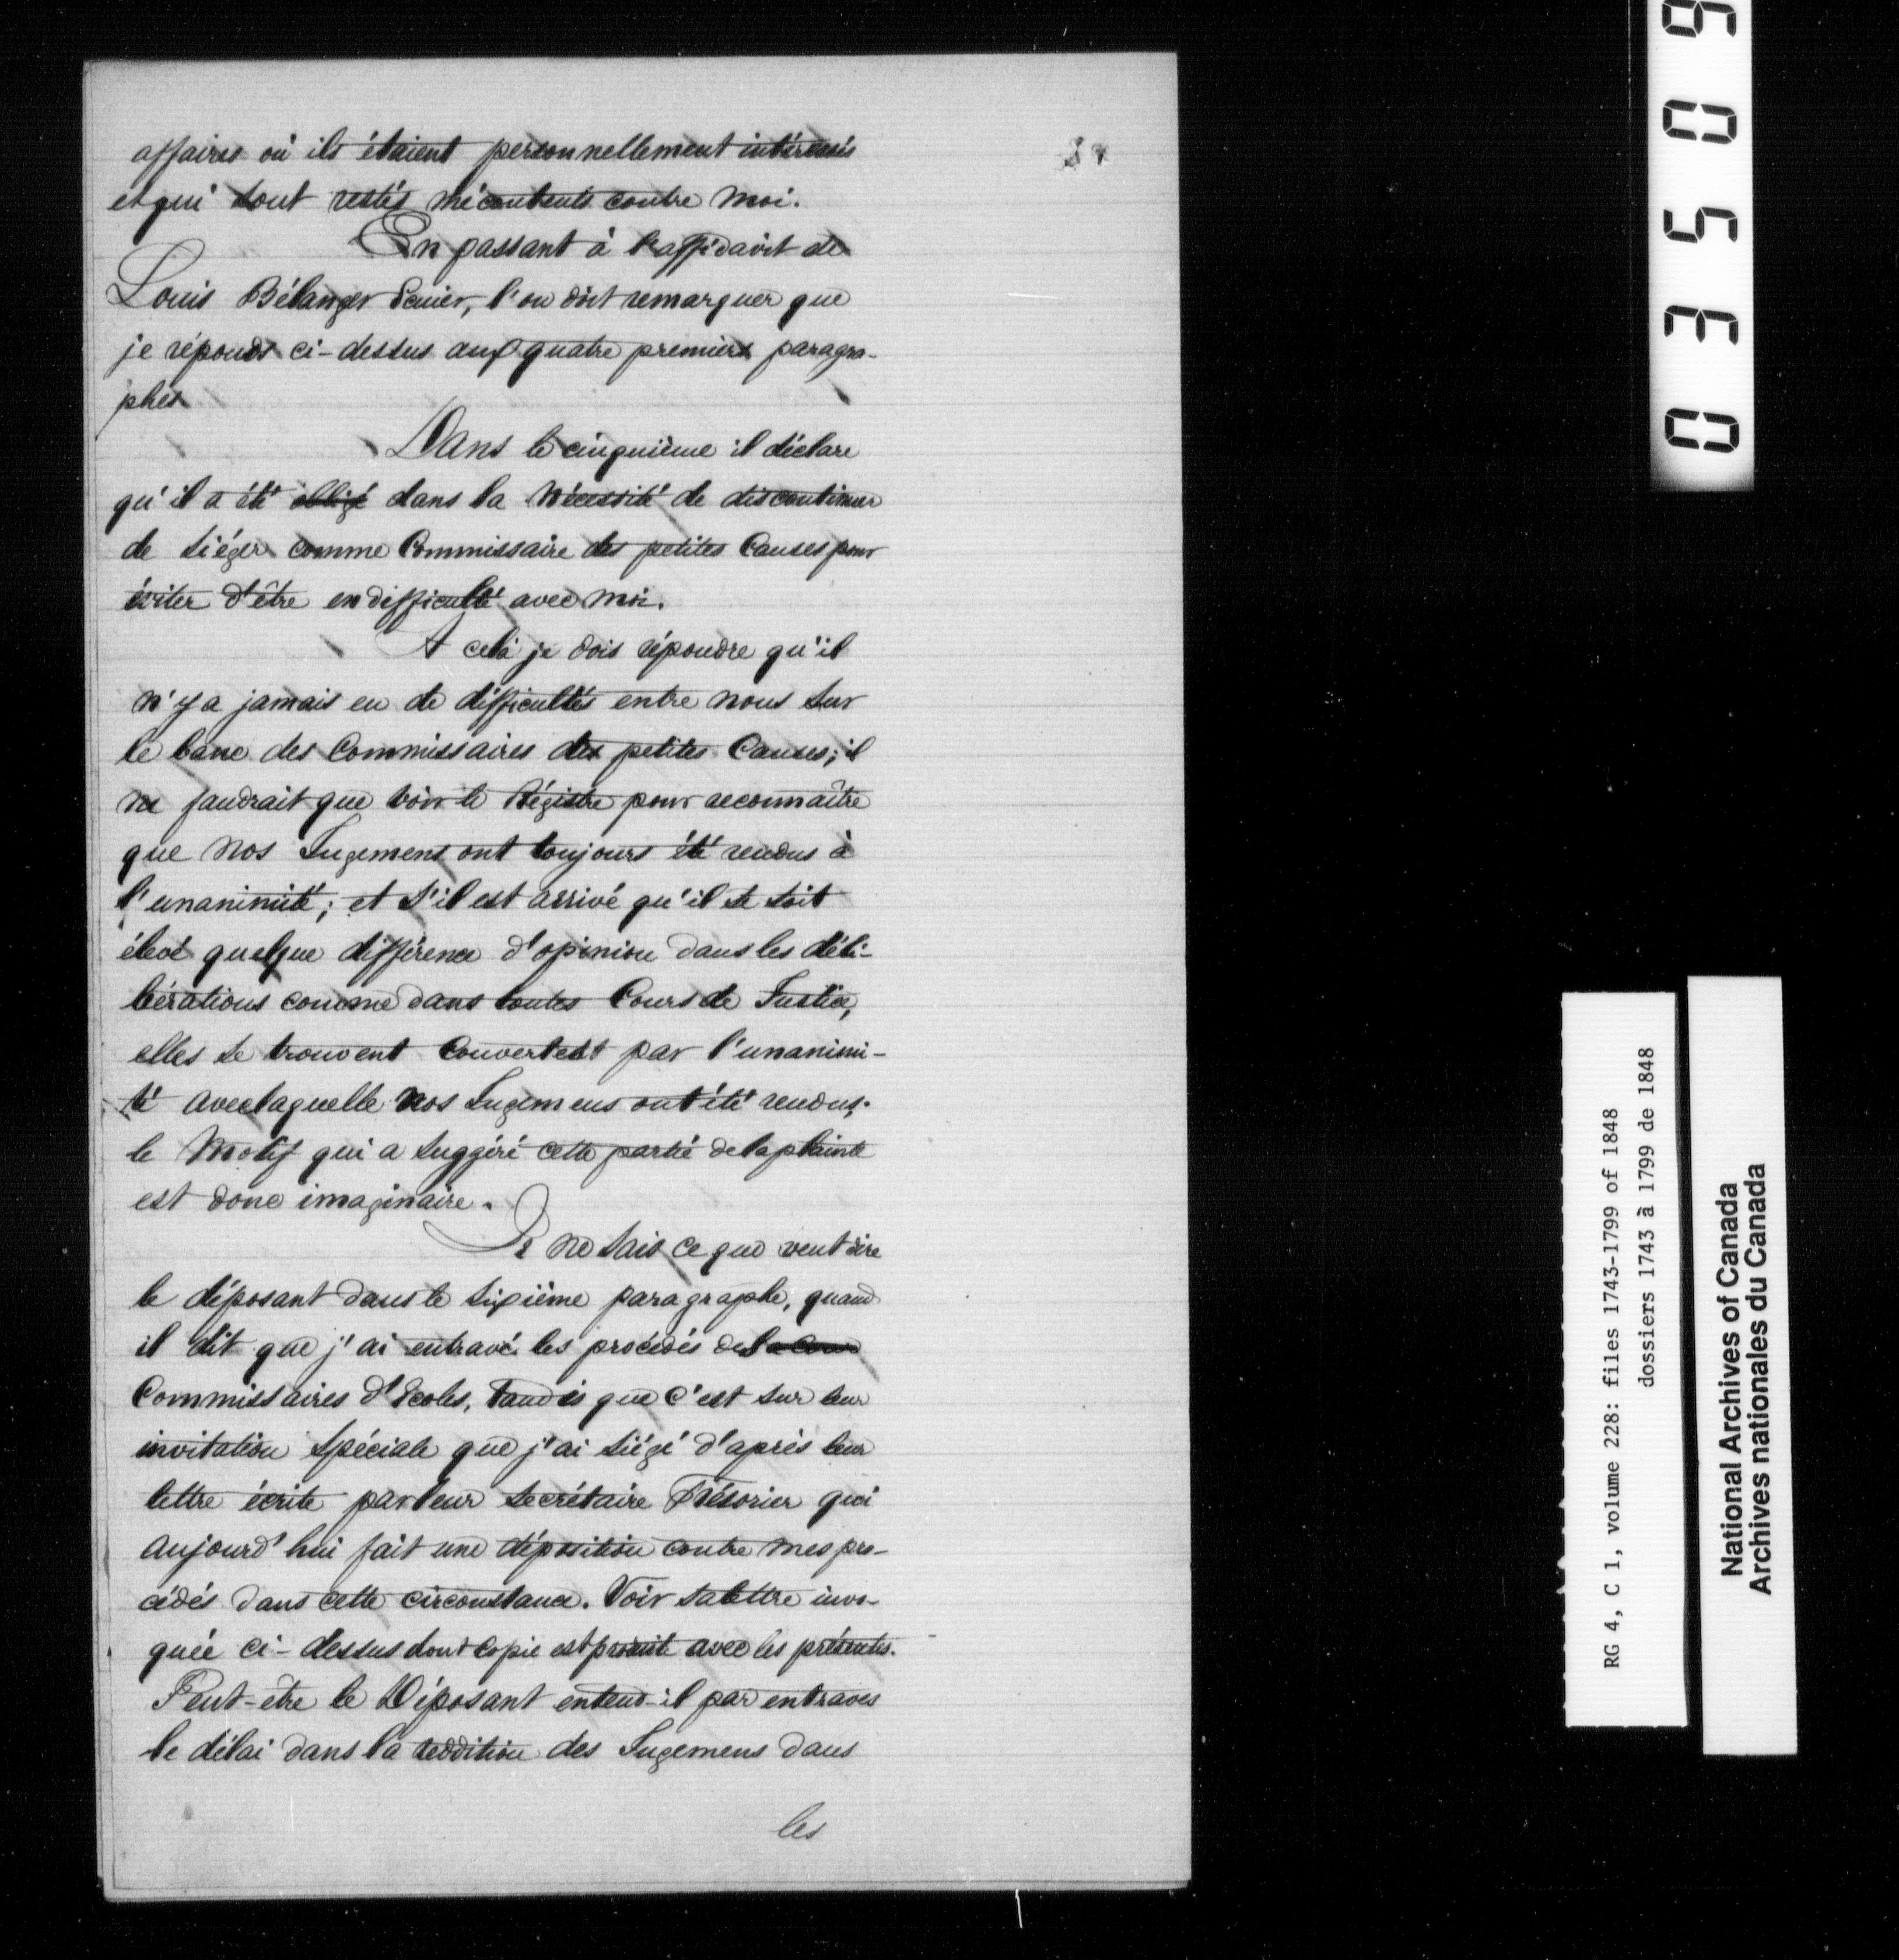 affaires où ils étaient personnellement intéressés
et qui sont restés mécontents contre moi.
En passant à l'affidavit de
Louis Bélanger Ecuier, l'on doit remarquer que
je réponds ci-dessus aux quatre premiers paragra-
phes
Dans le cinquième il déclare
qu'il a été obligé dans la nécessité de discontinuer
de siéger comme Commissaire des petites Causes pour
éviter d'être en difficulté avec moi.
A celà je dois répondre qu'il
n'y a jamais eu de difficultés entre nous sur
le banc des Commissaires des petites Causes; il
ne faudrait que voir le Régistre pour reconnaître
que nos Jugemens ont toujours été rendus à
l'unanimité; et s'il est arrivé qu'il se soit
élevé quelque différence d'opinion dans les déli-
bérations comme dans toutes Cours de Justice,
elles se trouvent Couvertes par l'unanimi-
té avec laquelle nos Jugemens ont été rendus.
le Motif qui a suggéré cette partie de la plainte
est donc imaginaire.
Je ne sais ce que veut dire
le déposant dans le sixième paragraphe, quand
il dit que j'ai entravé les procédés des la Cour
Commissaires d'Ecoles, tandis que c'est sur leur
invitation spéciale que j'ai siégé d'après leur
lettre écrite par leur secrétaire Trésorier qui
aujourd'hui fait une déposition contre mes pro-
cédés dans cette circonstance. Voir sa lettre invo-
quée ci-dessus dont copie est produite avec les présentes.
Peut-être le Déposant entend-il par entraves
le délai dans la reddition des Jugemens dans
les
0 3 5 0 9
RG 4, C 1, volume 228: files 1743-1799 of 1848
dossiers 1743 à 1799 de 1848
National Archives of Canada
Archives nationales du Canada